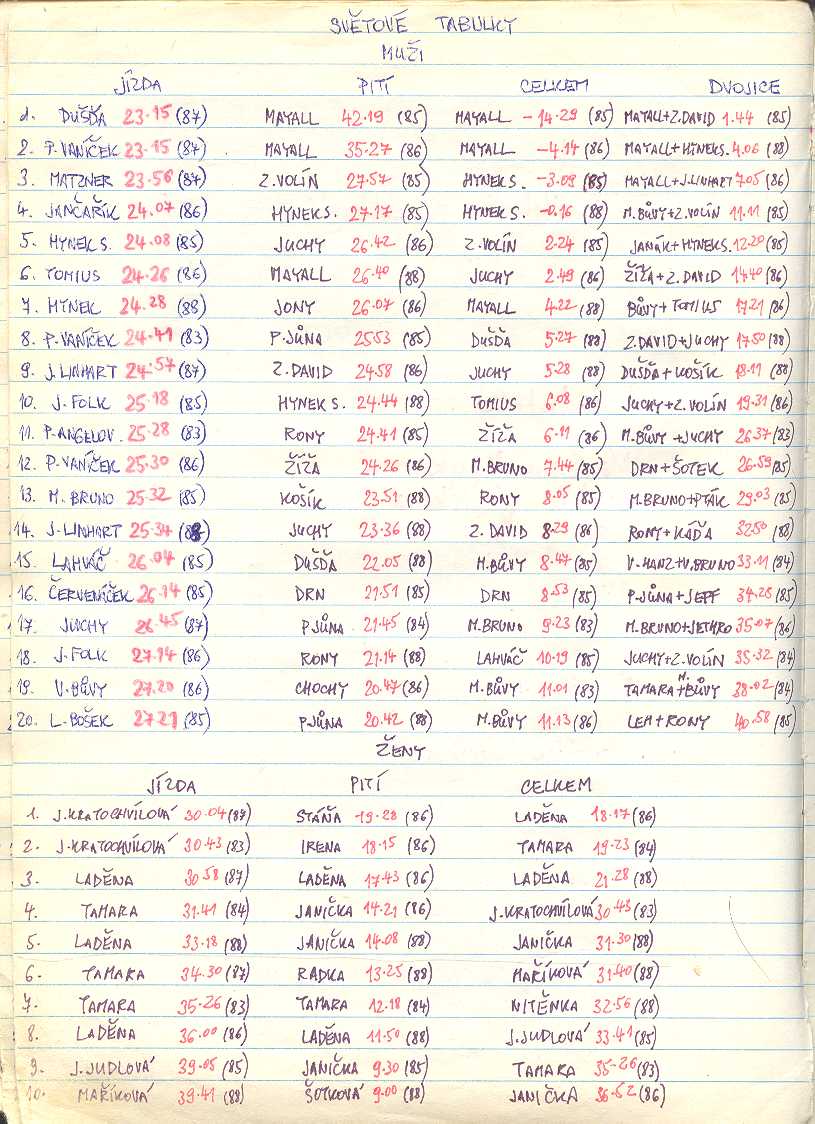 SVĚTOVÉ TABULKY
MUŽI
JÍZDA PITÍ CELKEM DVOJICE
1. DUŠĎA 23.15 (87) MAYALL 42.19 (85) MAYALL -14.29 (85) MAYALL+Z.DAVID 1.44 (85)
2. P.VANÍČEK 23.15 (87) MAYALL 35.27 (86) MAYALL -4.14 (86) MAYALL+HYNEKS. 4.06 (88)
3. MATZNER 23.56 (87) Z.VOLÍN 27.57 (85) HYNEK S. -3.09 (85) MAYALL+J.LINHART 7.05 (86)
4. JANČAŘÍK 24.07 (86) HYNEK S. 27.17 (85) HYNEK S. -0.16 (88) M.BŮVY+Z.VOLÍN 11.11 (85)
5. HYNEK S. 24.08 (85) JUCHY 26.42 (86) Z.VOLÍN 2.24 (85) JANÁK+HYNEKS. 12.20 (85)
6. TOMIUS 24.26 (86) MAYALL 26.40 (88) JUCHY 2.49 (86) ŽÍŽA+Z.DAVID 14.40 (86)
7. HYNEK 24.28 (88) JONY 26.07 (86) MAYALL 4.22 (88) BŮVY+TOMIUS 17.21 (86)
8. P.VANÍČEK 24.41 (83) P.JŮNA 25.53 (85) DUŠĎA 5.27 (88) Z.DAVID+JUCHY 17.50 (88)
9. J.LINHART 24.57 (87) Z.DAVID 24.58 (86) JUCHY 5.28 (88) DUŠĎA+KOŠÍK 18.11 (88)
10. J.FOLK 25.18 (85) HYNEK S. 24.44 (88) TOMIUS 6.08 (86) JUCHY+Z.VOLÍN 19.31 (86)
11. P.ANGELOV. 25.28 (83) RONY 24.41 (85) ŽÍŽA 6.11 (86) M.BŮVY+JUCHY 26.37 (83)
12. P.VANÍČEK 25.30 (86) ŽÍŽA 24.26 (86) M.BRUNO 7.44 (85) DRN+ŠOTEK 26.59 (85)
13. M.BRUNO 25.32 (85) KOŠÍK 23.51 (88) RONY 8.05 (85) M.BRUNO+PTÁK 29.03 (85)
14. J.LINHART 25.34 JUCHY 23.36 (88) Z.DAVID 8.29 (86) RONY+KÁĎA 32.50 (88)
15. LAHVÁČ 26.04 (85) DUŠĎA 22.05 (88) M.BŮVY 8.47 (85) V.HANZ+V.BRUNO 33.11 (84)
16. ČERVENÍČEK 26.14 (85) DRN 21.51 (85) DRN 8.53 (85) P.JŮNA+JEFF 34.28 (85)
17. JUCHY 26.45 (87) P.JŮNA 21.45 (84) M.BRUNO 9.23 (83) M.BRUNO+JETHRO 35.07 (86)
18. J.FOLK 27.14 (86) RONY 21.14 (88) LAHVÁČ 10.19 (85) JUCHY+Z.VOLÍN 35.32 (84)
19. V.BŮVY 27.20 (86) CHOCHY 20.47 (86) M.BŮVY 11.01 (83) TAMARA+M.BŮVY 38.02 (84)
20. L.BOŠEK 27.21 (85) P.JŮNA 20.42 (88) M.BŮVY 11.13 (86) LEM+RONY 40.58 (85)
ŽENY
JÍZDA PITÍ CELKEM
1. J.KRATOCHVÍLOVÁ 30.04 (87) STÁŇA 19.28 (86) LADĚNA 18.17 (86)
2. J.KRATOCHVÍLOVÁ 30.43 (83) IRENA 18.15 (86) TAMARA 19.23 (84)
3. LADĚNA 30.58 (87) LADĚNA 17.43 (86) LADĚNA 21.28 (88)
4. TAMARA 31.41 (84) JANIČKA 14.21 (86) J.KRATOCHVÍLOVÁ 30.43 (83)
5. LADĚNA 33.18 (88) JANIČKA 14.08 (88) JANIČKA 31.30 (88)
6. TAMARA 34.30 (87) RADKA 13.25 (88) MAŘÍKOVÁ 31.40 (88)
7. TAMARA 35.26 (83) TAMARA 12.18 (84) NITĚNKA 32.56 (88)
8. LADĚNA 36.00 (86) LADĚNA 11.50 (88) J.JUDLOVÁ 33.41 (85)
9. J.JUDLOVÁ 39.05 (85) JANIČKA 9.30 (85) TAMARA 35.26 (83)
10. MAŘÍKOVÁ 39.41 (88) ŠOTKOVÁ 9.00 (88) JANIČKA 36.52 (86)